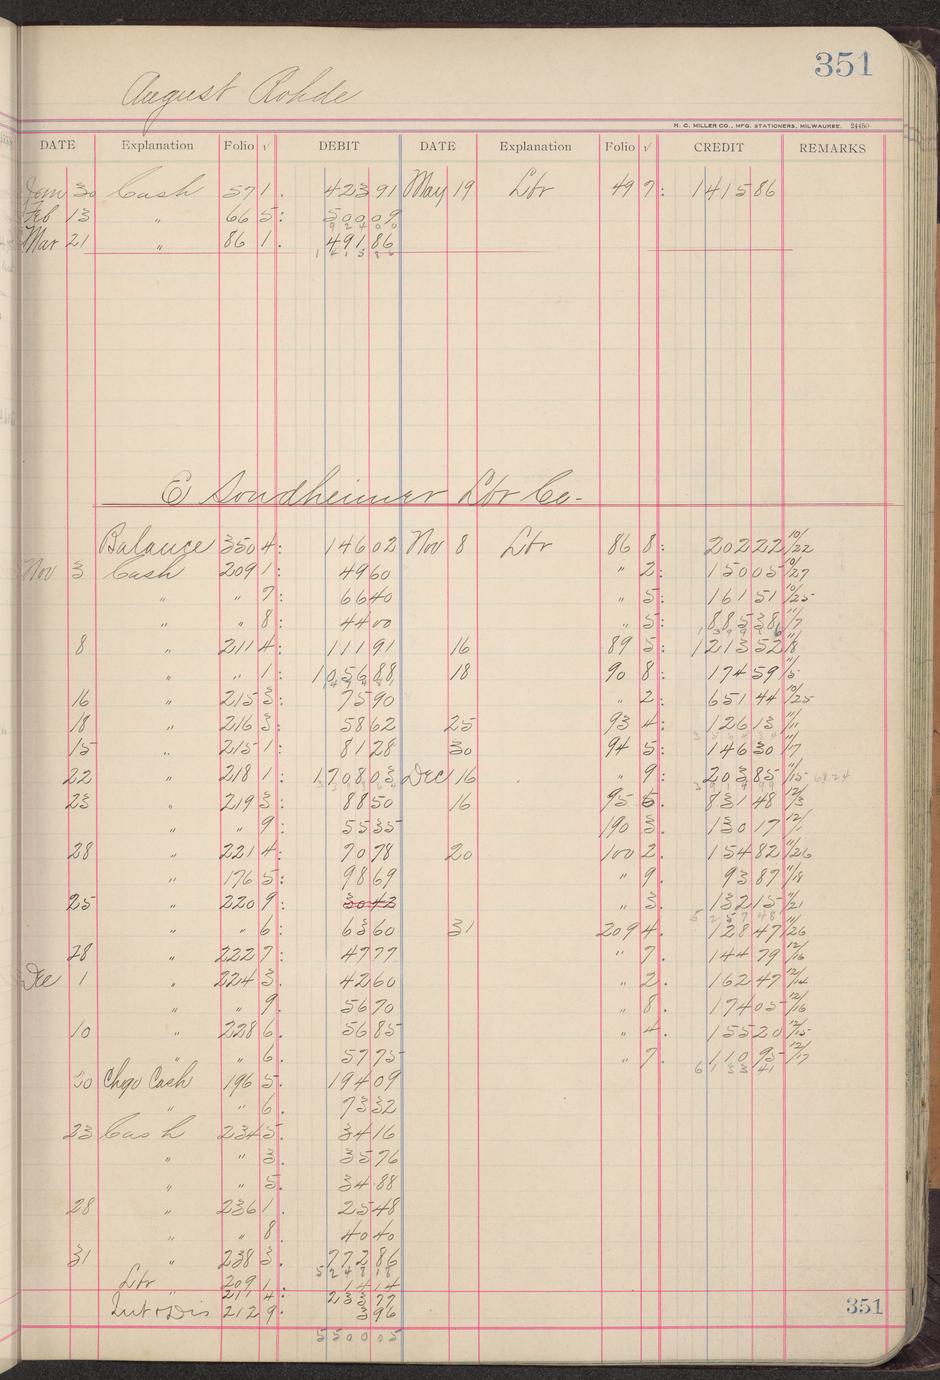 351
August Rohde
H. C. MILLER CO., MFG. STATIONERS, MILWAUKEE. 24450
DATE Explanation Folio √ DEBIT DATE Explanation Folio √ CREDIT REMARKS
Jan 30 Cash 57 1. 423 91 May 19 Lbr 49 7: 1415 86
Feb 13 " 66 5: 500 09
924 00
Mar 21 " 86 1. 491 86
1415 86
E Sondheimer Lbr Co-
Balance 350 4: 146 02 Nov 8 Lbr 86 8: 202 22 10/22
Nov 3 Cash 209 1: 49 60 " 2: 150 05 10/27
" " 7: 66 40 " 5: 161 51 10/25
" " 8: 44 00 " 5: 885 38 11/7
8 " 211 4: 111 91 16 89 5: 1213 52 11/8
" " 1: 1056 88 18 90 8: 174 59 11/5
16 " 215 3: 75 90 " 2: 651 44 10/25
18 " 216 3: 58 62 25 93 4: 126 13 11/11
15 " 215 1: 81 28 30 94 5: 146 30 11/7
22 " 218 1: 1708 03 Dec 16 " 9: 203 85 11/15
23 " 219 3: 88 50 16 95 6: 831 48 12/3
" " 9: 55 35 190 3. 130 17 12/1
28 " 221 4: 70 78 20 100 2. 154 82 11/26
" 176 5: 98 69 " 9. 93 87 11/18
25 " 220 9: 30 42 " 3. 132 15 11/21
5257 48
" " 6: 63 60 31 209 4. 128 47 11/26
28 " 222 7: 47 77 " 7. 144 79 12/16
Dec 1 " 224 3. 42 60 " 2. 162 47 12/14
" " 9. 56 70 " 8. 174 05 12/16
10 " 228 6. 56 85 " 4. 155 20 12/15
" " 6. 57 75 " 7. 110 95 12/17
6133 41
20 Chgo Cash 196 5. 194 09
" " 6. 73 32
23 Cash 234 5. 34 16
" " 3. 35 76
" " 5. 34 88
28 " 236 1. 25 48
" " 8. 40 40
31 " 238 3. 772 86
5248 18
Lbr 209 1. 14 14
" 211 4 233 77
Int & Dis 212 9: 3 96
5500 05
351